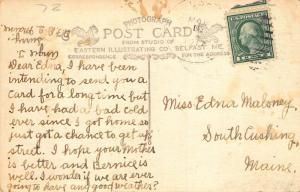 72
PHOTOGRAPH
POST CARD
FROM STUDIO OF
EASTERN ILLUSTRATING CO. BELFAST ME.
CORRESPONDENCE
FOR THE ADDRESS
Dear Edna, I have been
intending to send you a
Card for a long time but
I have had a bad cold
ever since I got home so
just got a chance to get up
street. I hope your mother
is better and Bernice is
well. I wonder if we are ever
going to have any good weather?
Miss Edna Maloney,
South Cushing,
Maine.